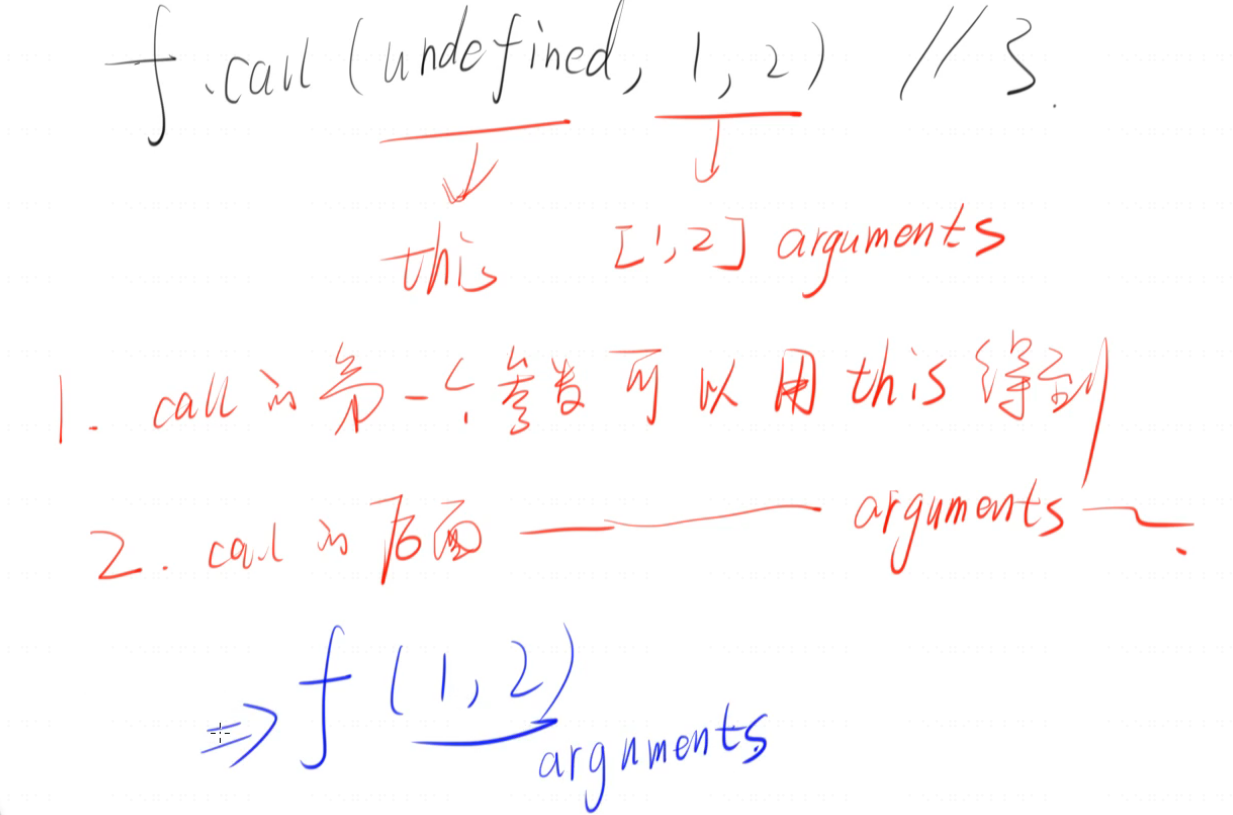 f.call(undefined, 1, 2) // 3.
this [1,2] arguments
1. call 的第一个参数可以用 this 得到
2. call 的后面 —— arguments ~.
=> f(1,2)
arguments